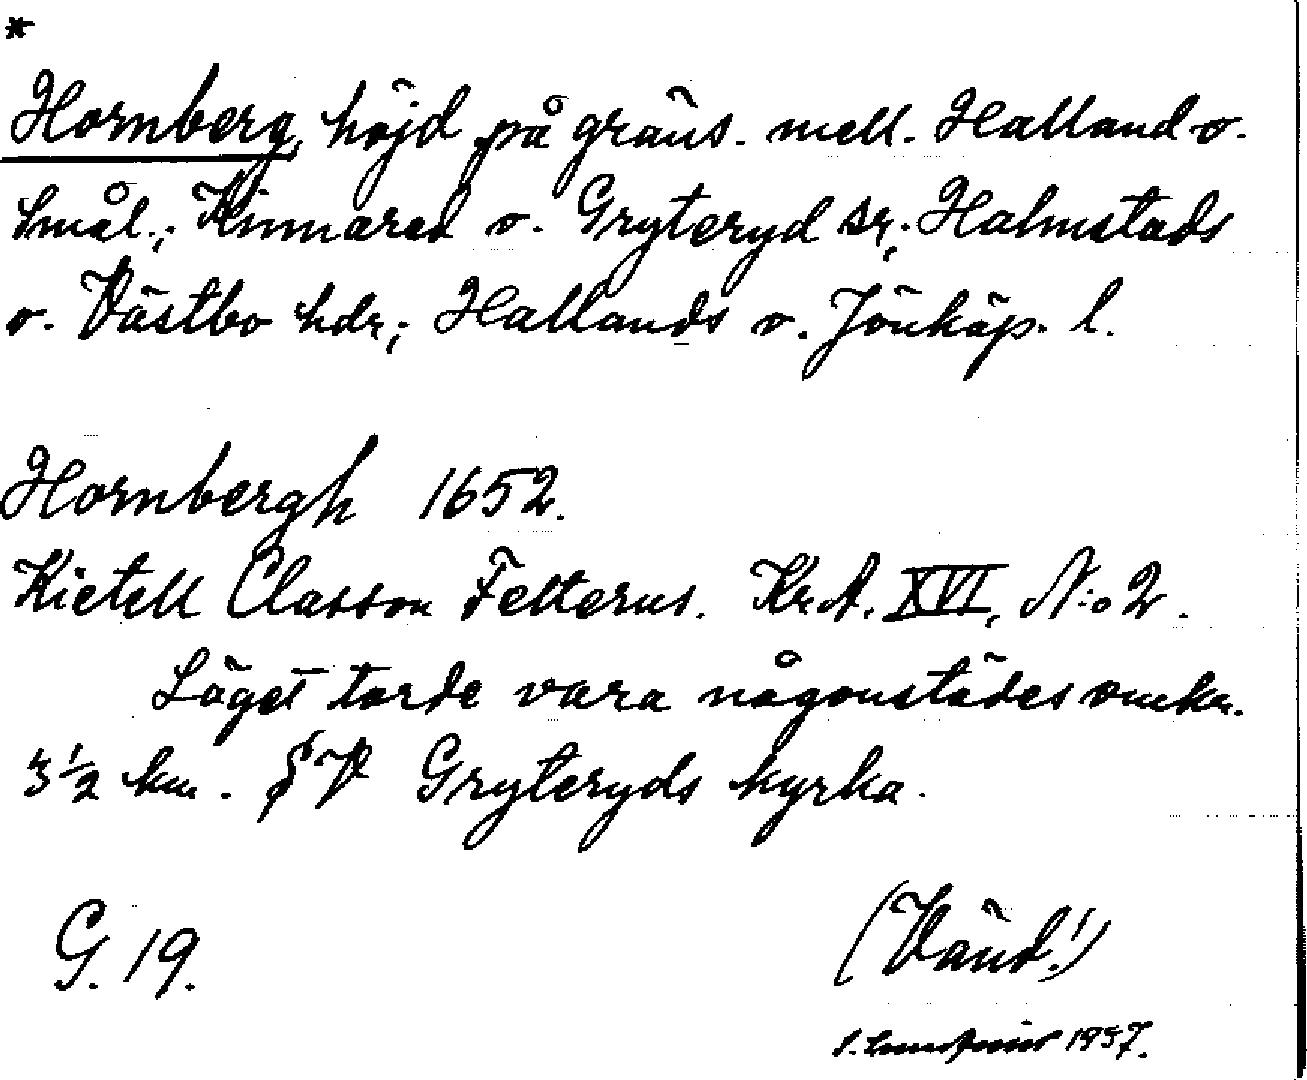 *
Hornberg, höjd på gräns. mell. Halland o.
Smål.; Kinnared o. Gryteryd sr; Halmstads
o. Västbo hdr; Hallands o. Jönköp. l.
Hornbergh 1652.
Kietell Classon Felterus. Kr.A. XVI, N:o 2.
Läget torde vara någonstädes omkr.
3 1/2 km. SV Gryteryds kyrka.
G. 19.
(Vänd!)
1937.